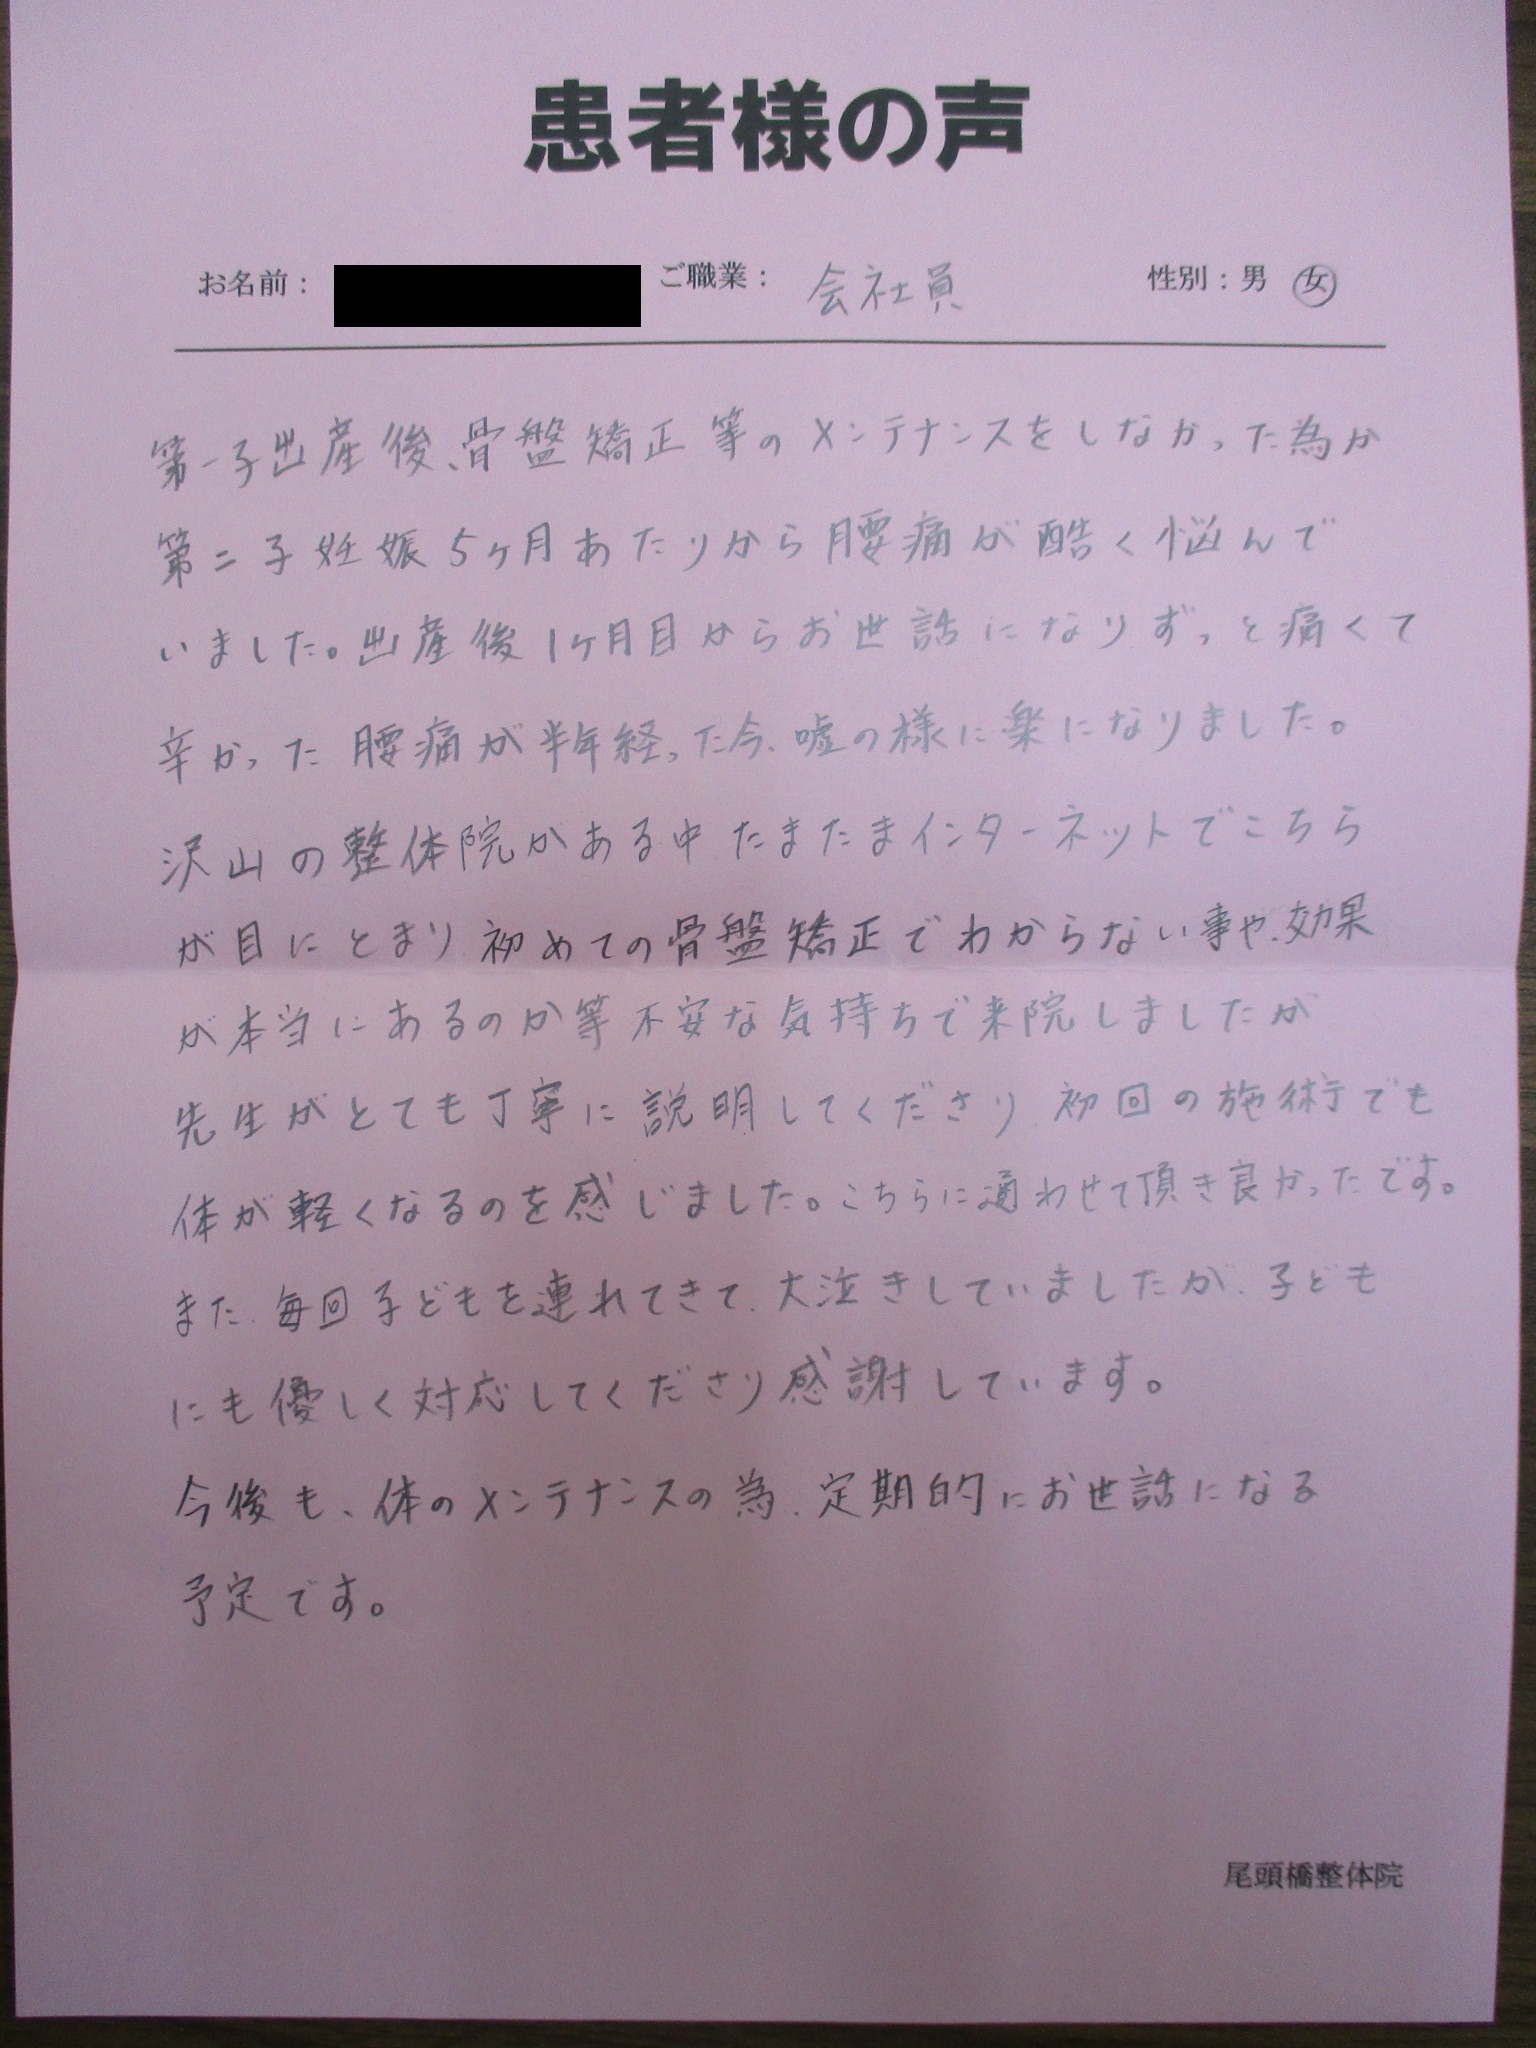 患者様の声
お名前: ご職業: 会社員 性別:男 女
第一子出産後、骨盤矯正等のメンテナンスをしなかった為か
第二子妊娠5ヶ月あたりから腰痛が酷く悩んで
いました。出産後1ヶ月目からお世話になりずっと痛くて
辛かった腰痛が半年経った今、嘘の様に楽になりました。
沢山の整体院がある中、たまたまインターネットでこちら
が目にとまり、初めての骨盤矯正でわからない事や、効果
が本当にあるのか等不安な気持ちで来院しましたが
先生がとても丁寧に説明してくださり、初回の施術でも
体が軽くなるのを感じました。こちらに通わせて頂き良かったです。
また、毎回子どもを連れてきて、大泣きしていましたが、子ども
にも優しく対応してくださり感謝しています。
今後も、体のメンテナンスの為、定期的にお世話になる
予定です。
尾頭橋整体院